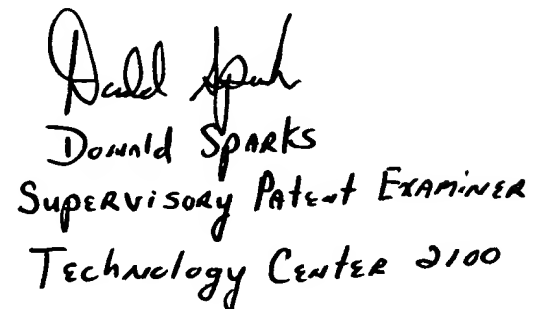 Donald Sparks
Donald Sparks
Supervisory Patent Examiner
Technology Center 2100